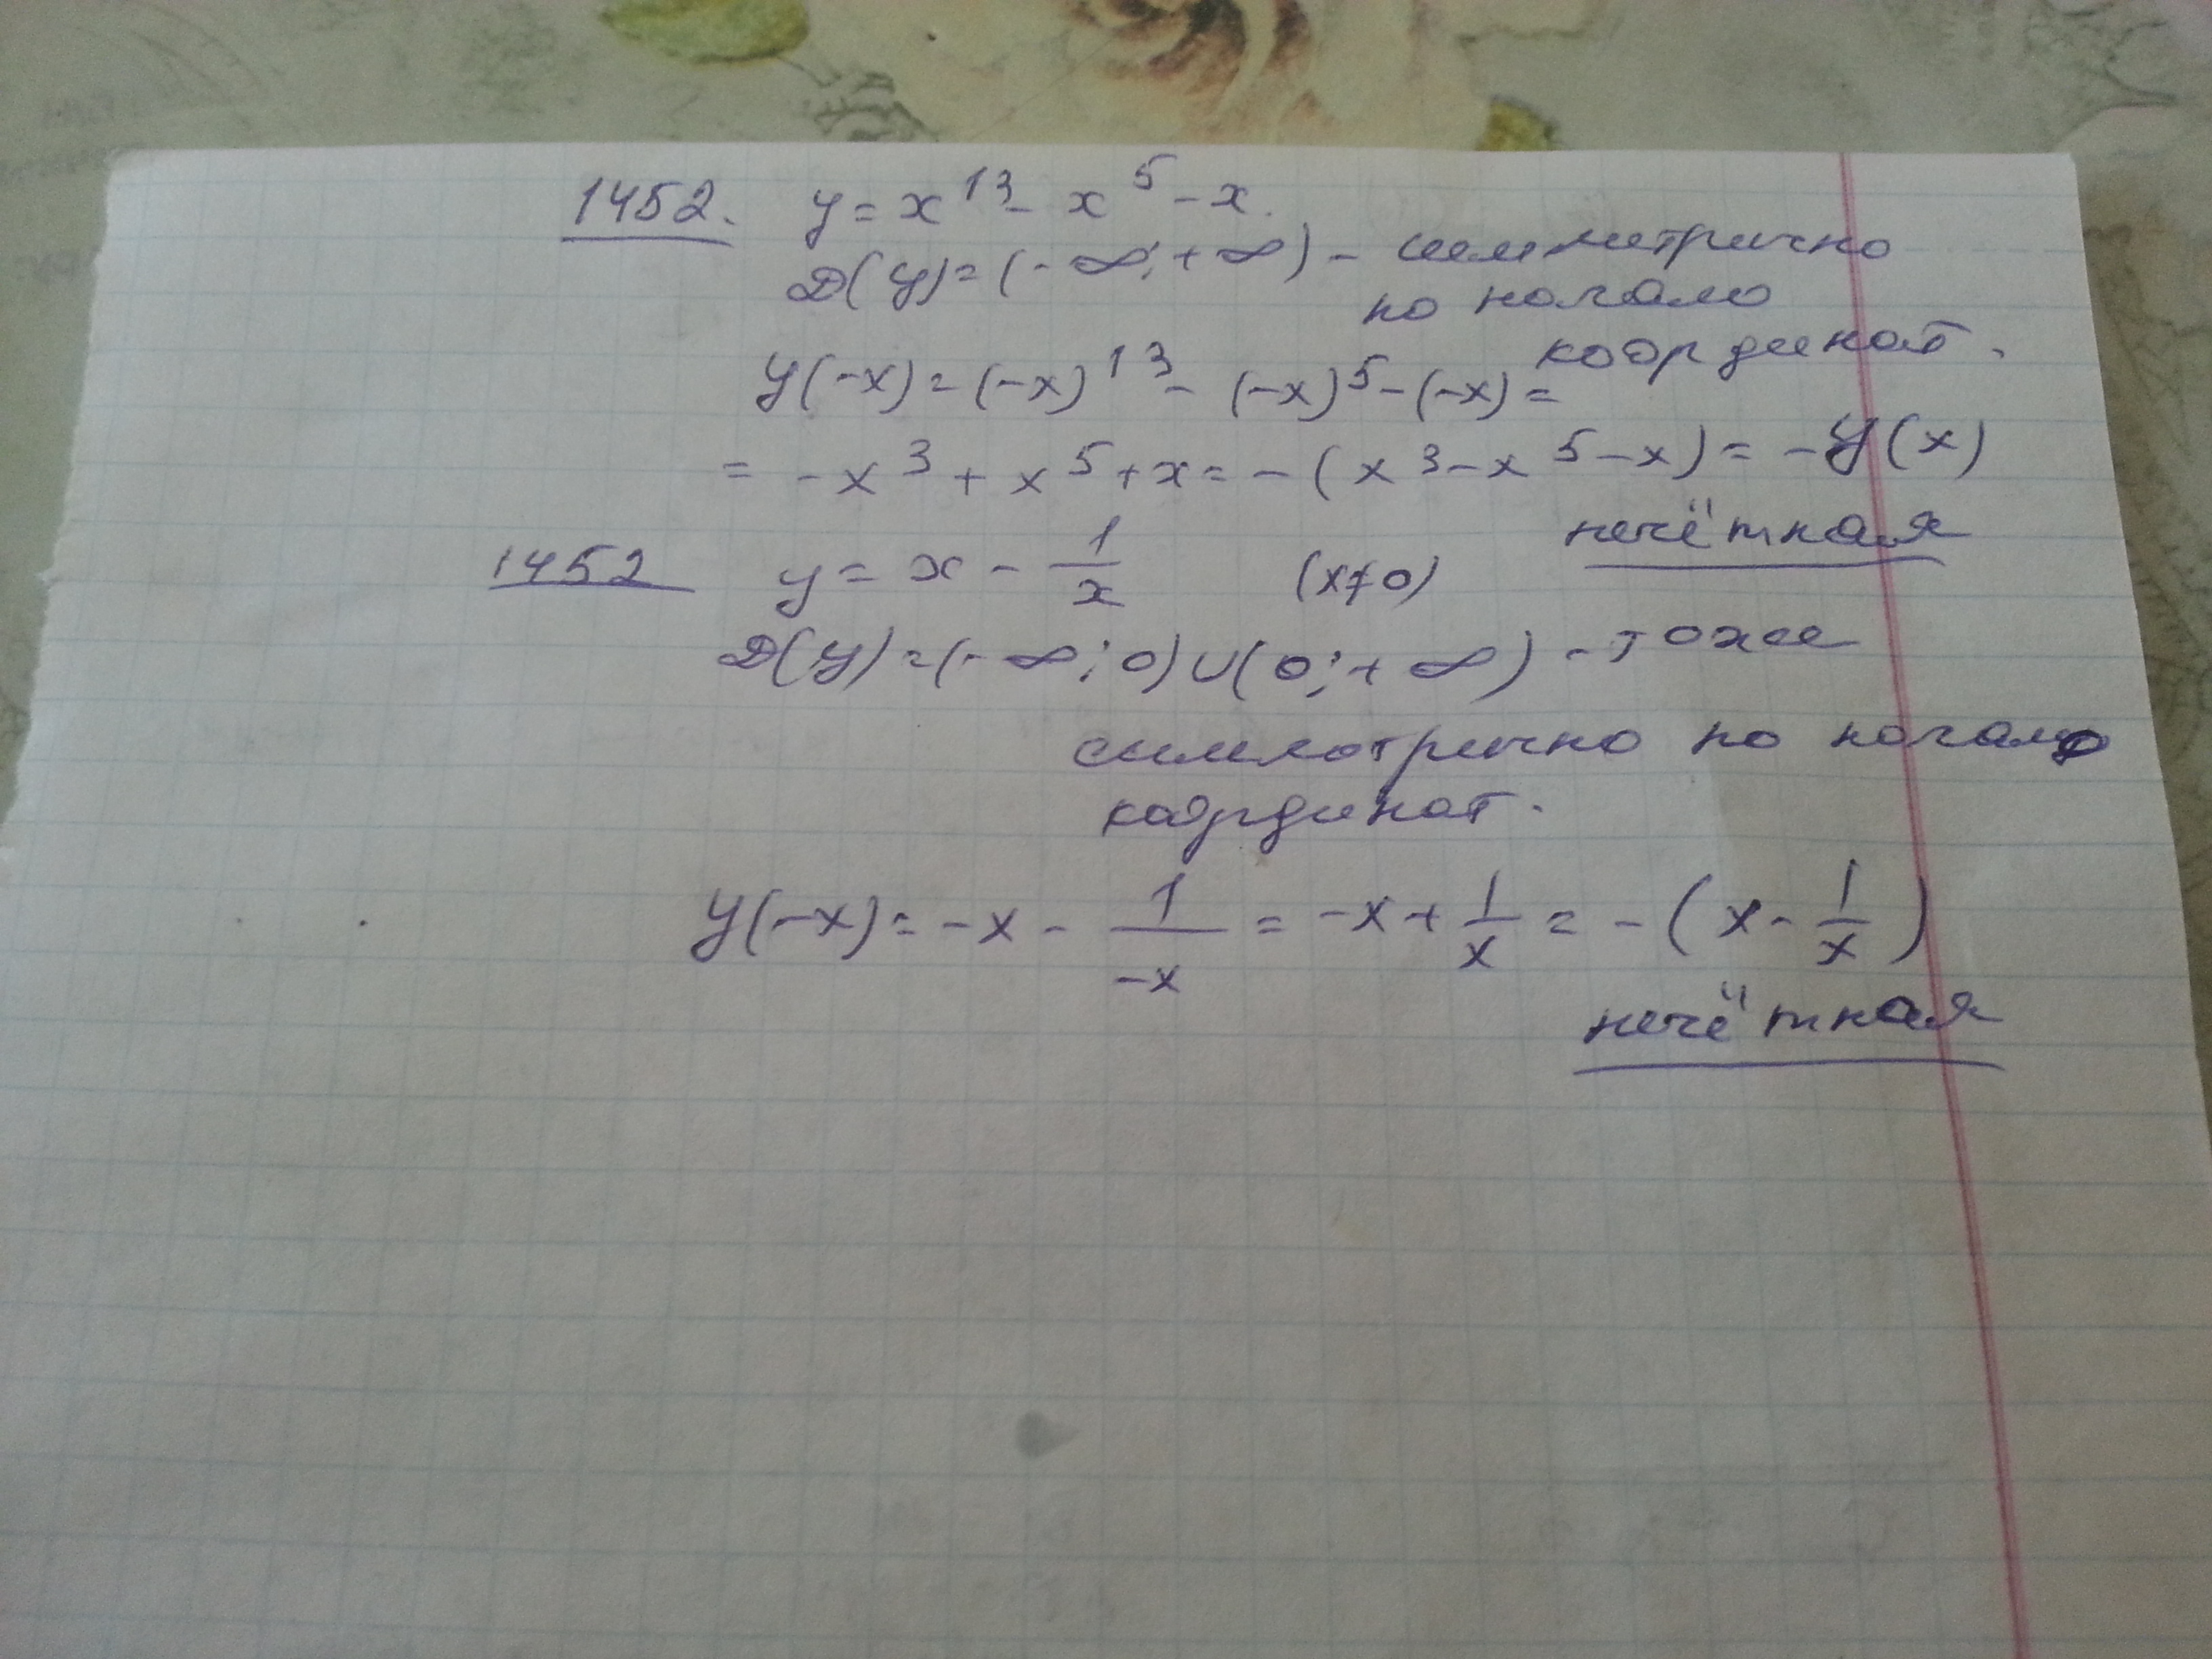 1452. y = x¹³ - x⁵ - x.
D(y) = (-∞; +∞) - симметрично
по начало
координат.
y(-x) = (-x)¹³ - (-x)⁵ - (-x) =
= -x³ + x⁵ + x = -(x³ - x⁵ - x) = -y(x)
нечётная
1452 y = x - 1/x (x≠0)
D(y) = (-∞; 0) ∪ (0; +∞) - тоже
симметрично по начало
координат.
y(-x) = -x - 1/-x = -x + 1/x = -(x - 1/x)
нечётная